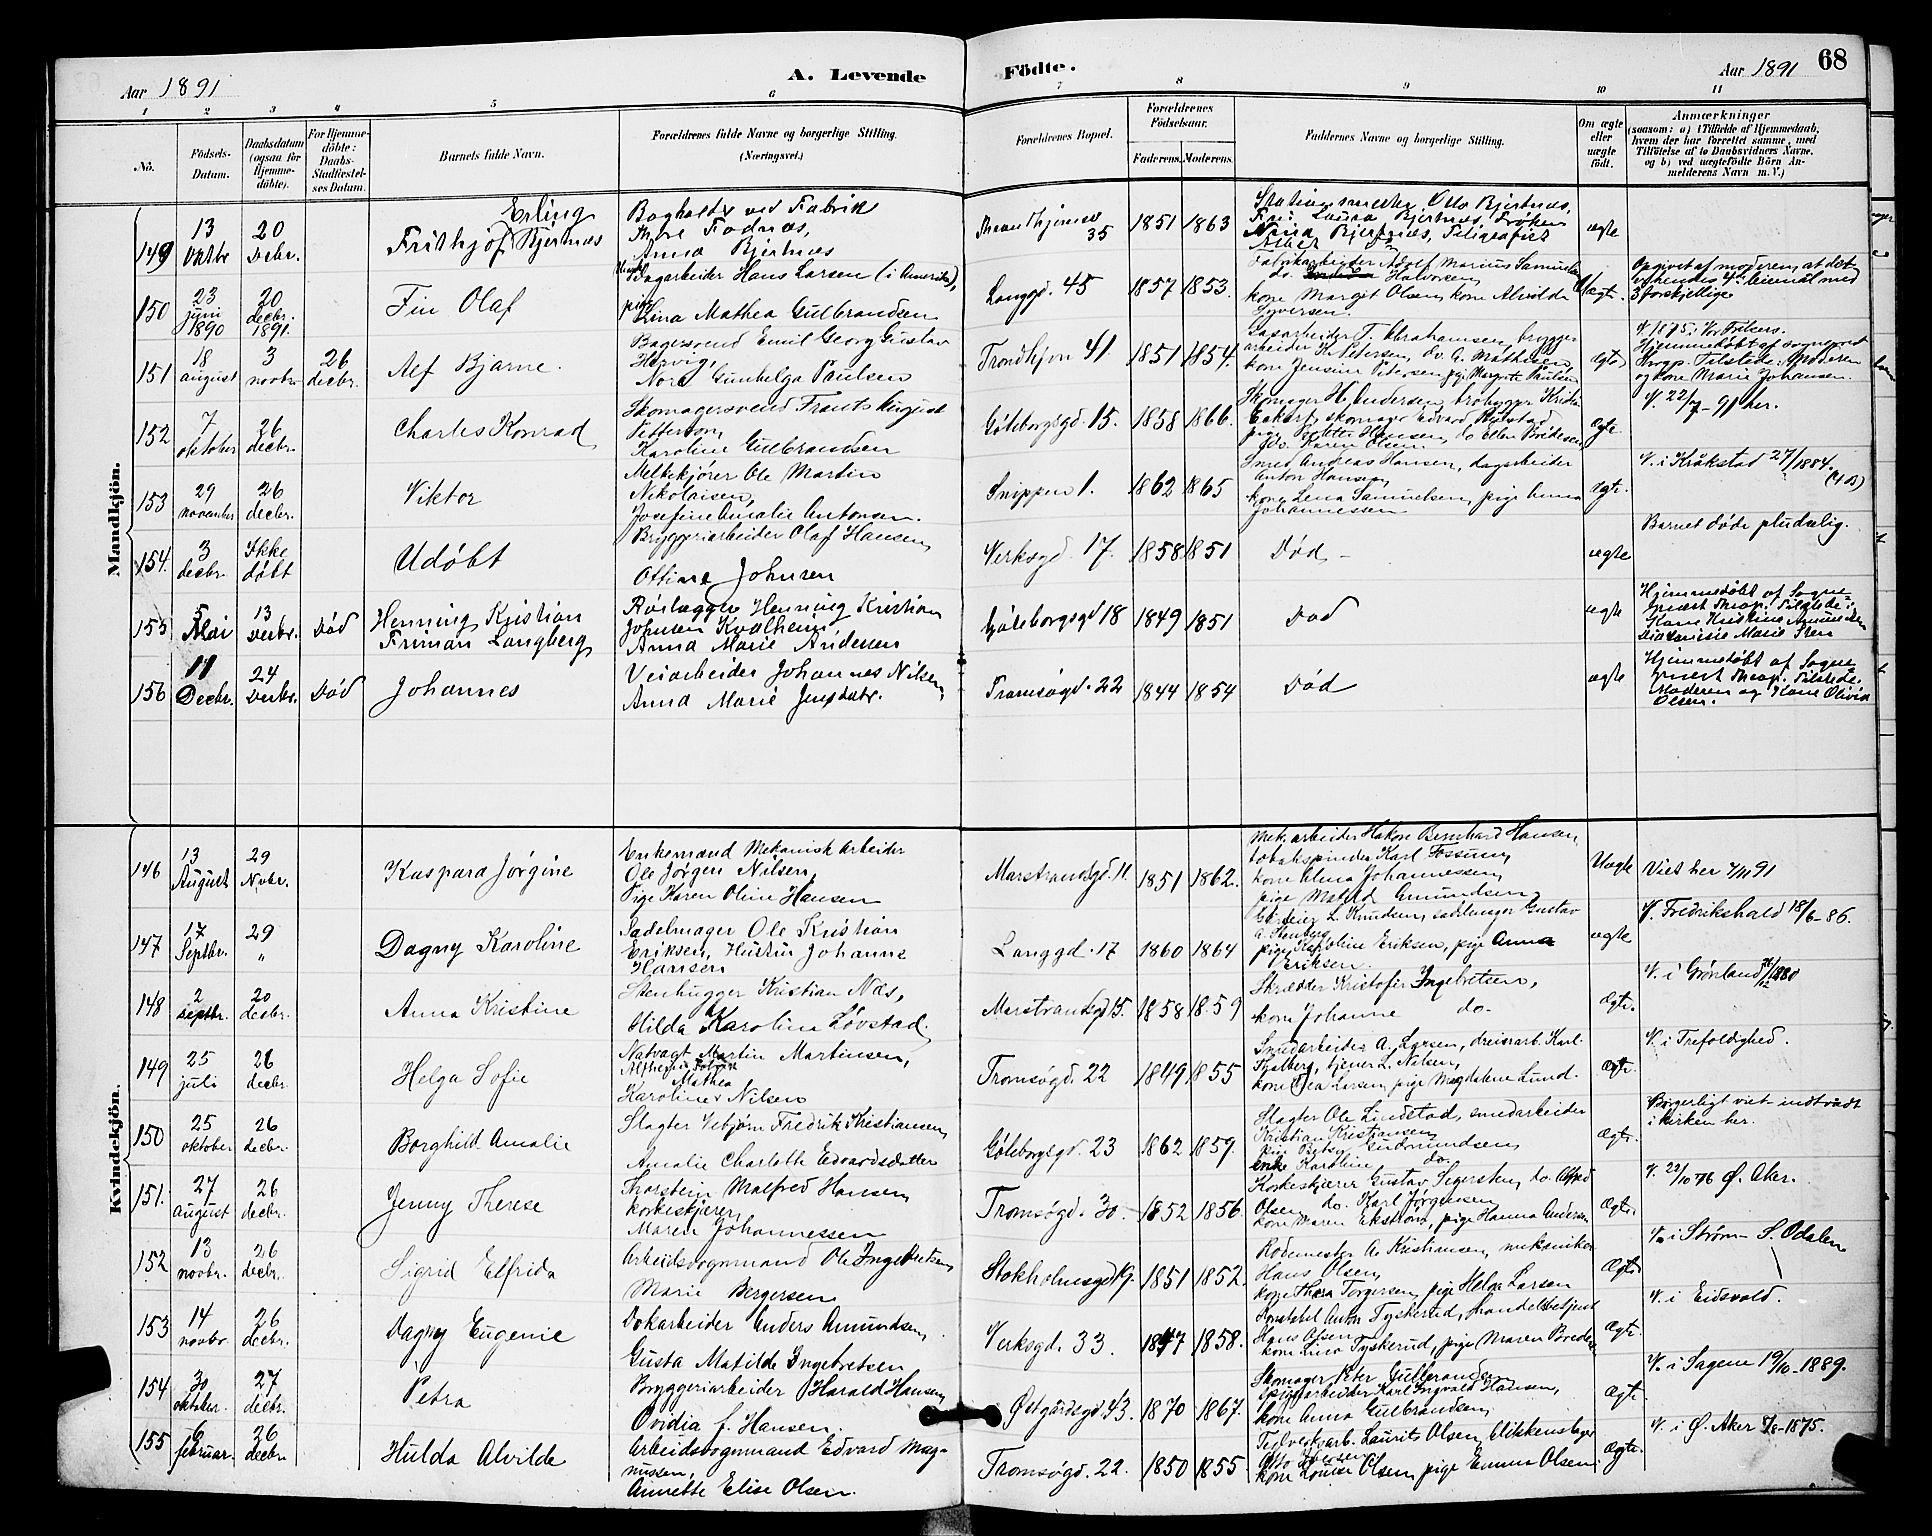 Aar 1891
A. Levende
Födte.
Aar 1891
68
1 2 3 4 5 6 7 8 9 10 11
No.
Födsels-
Datum.
Daabsdatum
(ogsaa for
Hjemme-
döbte).
For Hjemme-
döbte:
Daabs-
Stadfæstel-
ses Datum.
Barnets fulde Navn.
Forældrenes fulde Navne og borgerlige Stilling.
(Næringsvei.)
Forældrenes Bopæl.
Forældrenes
Födselsaar.
Faderens. Moderens.
Faddernes Navne og borgerlige Stilling.
Om ægte
eller
uægte
födt.
Anmærkninger
(saasom: a) i Tilfælde af Hjemmedaab,
hvem der har forrettet samme, med
Tilföielse af to Daabsvidners Navne,
og b) ved uægtefödte Börn An-
melderens Navn m.V.)
Mandkjön.
149
13
Oktbr
20
Decbr.
Erling
Frithjof Bjertnæs
Bogholder ved Fabrik
Thore Fodnæs,
Anna Bjertnæs
35
1851 1863
Stationsmester Otto Bjertnæs,
ægte
150
23
juni
1890
20
decbr.
1891.
Fin Olaf
Dagarbeider Hans Larsen (i Amerika),
pige
Lina Mathea Gulbrandsen
Langgd. 45
1857 1853.
Fabrikarbeider Adolf Marius Samuelsen
do. Halvorsen
kone Margit Olsen, kone Alvilde
Syversen.
Uægt.
Opgivet af moderen, at det
er hendes 4de leiemål med
3 forskjellige
151
18
august
3
novbr
26
decbr.
Alf Bjarne.
Bagersvend Emil Georg Gustav
Hervig,
Nora Gunhelga Paulsen
Trondhjem 41.
1851 1854.
Gasarbeider T. Abrahamsen, brygger
arbeider K. Petersen, do. G. Mathisen,
kone Jensine Petersen, pige Margrete Paulsen
ægte
V. 1875 i Vor Frelsers.
Hjemmedøbt af sogneprest
Krop. Tilstede: Moderen
og kone Marie Johansen.
152
7
oktober
26
decbr.
Charles Konrad
Skomagersvend Frants August
Petterson,
Karoline Gulbrandsen
Göteborgsgd. 15.
1858 1866.
Skomager H. Andersen, brobygger Kristian
do. Karen Olsen
Ægte
V. 22/7 - 91 her.
153
29
november
26
decbr.
Viktor
Melkekjører Ole Martin
Nikolaisen,
Josefine Amalie Antonsen.
Snippen 1.
1862 1865
Smed Andreas Hansen, dagarbeider
Anton Hansen,
kone Lena Samuelsen, pige Anna
Johannessen
Ægte.
V. i Kråkstad 27/1884.
154.
3
decbr.
Ikke
døbt
Udøbt
Bryggeriarbeider Olaf Hansen,
Ottine Johnsen
Verksgd. 17.
1858 1851
Død -
ægte
Barnet døde pludselig.
155
5
Mai
13
Decbr.
Død
Henning Kristian
Friman Langberg
Rørlægger Henning Kristian
Johnsen Kvalheim,
Anna Marie Andersen
Göteborgsgd 18
1849 1851
Død
ægte
Hjemmedøbt af Sogne-
prest Throp. Tilstede:
Kone Kristine Amundsen
Diakonisse Marie Sten
156
11
Decbr.
24
Decbr.
Død
Johannes
Veiarbeider Johannes Nilsen,
Anna Marie Jensdatr.
Tromsøgd. 22
1844 1854
Død
ægte
Hjemmedøbt af Sogne-
prest Throp. Tilstede:
Moderen og Kone Olivia
Olsen.
Kvindekjön.
146
13
August
29
Nvbr.
Kaspara Jørgine
Enkemand Mekanisk Arbeider
Ole Jørgen Nilsen,
Pige Karen Oline Hansen
Marstrandgd. 11.
1851 1862.
Mek. arbeider Hakon Bernhard Hansen,
tobakspinder Karl Fossum,
kone Alma Johannessen,
pige Matild Amundsen
Uægte
Viet her 4/11 91
147
17
Septbr.
29
"
Dagny Karoline
Sadelmager Ole Kristian
Eriksen, Hustru Johanne
Hansen
Langgd. 17
1860 1864
Gårdeier L. Knudsen, sadelmager Gustav
A. Stenberg,
pige Karoline Eriksen, pige Anna
Eriksen.
ægte
V. Fredrikshald 18/6-86.
148
2
septbr.
20
decbr.
Anna Kristine
Stenhugger Kristian Næs,
Hilda Karolina Løvstad.
Marstrandgd 15.
1858 1859
Skrædder Kristofer Ingebretsen,
kone Johanne do.
Ægte.
V. i Grønland 26/12 1880
149
25
juli
26
decbr.
Helga Sofie
Natvagt Martin Martinsen,
Mathea
Karoline Nilsen
Tromsøgd. 22
1849 1855
Smedarbeider A. Larsen, dreierarb. Karl
Fjelberg, tjener L. Nilsen,
kone Thea Larsen, pige Magdalene Lund.
Ægte
V. i Trefoldighed.
150
25
oktober
26
decbr.
Borghild Amalie
Slagter Vebjørn Fredrik Kristiansen,
Amalie Charlotte Edvardsdatter
Göteborgsgd. 23
1862 1859.
Slagter Ole Lindstad, smedarbeider
Kristian Kristiansen,
pige Betsy Gudmundsen,
enke Karoline do.
Ægte.
Borgerligt viet indtrådt
i kirken her.
151.
27
august
26
decbr.
Jenny Therese
Thorstein Malfred Hansen,
korkeskjærer,
Maren Johannessen
Tromsøgd. 30.
1852 1856.
Korkeskjærer Gustav Segersten, do. Alfred
Olsen, do. Karl Jørgensen,
kone Maren Ekstrøm, pige Hanna Andersen
Ægte.
V. 22/10 76 Ø. Aker.
152
13
novbr.
26
decbr.
Sigrid Elfrida
Arbeidsvognmand Ole Ingebretsen,
Marie Bergersen
Stokholmsgd 19.
1851 1852.
Rodemester A. Kristiansen, mekaniker
Hans Olsen,
kone Thora Torgersen, pige Helga Larsen
Ægte
V. i Strøm S. Odalen
153
14
novbr.
26
decbr.
Dagny Eugenie
Dokarbeider Anders Amundsen,
Gusta Matilde Ingebretsen
Verksgd. 33.
1847 1858.
Konstabel Anton Tyskerud, handelsbetjent
Hans Olsen,
kone Lina Tyskerud, pige Maren Bredesen
Ægte.
V. i Eidsvold.
154
30
oktober.
27
decbr.
Petra
Bryggeriarbeider Harald Hansen,
Ovidia f. Hansen.
Østgårdsgd. 43.
1870 1867.
Skomager Peter Gulbrandsen,
spigerarbeider Karl Ingvald Hansen,
kone Anna Gulbrandsen,
Ægte.
V. i Sagene 19/10-1889.
155
6
februar.
26
decbr.
Hulda Alvilde
Arbeidsvognmand Edvard Mag-
nussen,
Annette Elise Olsen.
Tromsøgd. 22.
1850 1855
Teglverksarb. Laurits Olsen, blikkenslager
Otto Iversen,
kone Louise Olsen, pige Emma Olsen.
Ægte.
V. i Ø. Aker 8/8-1875.